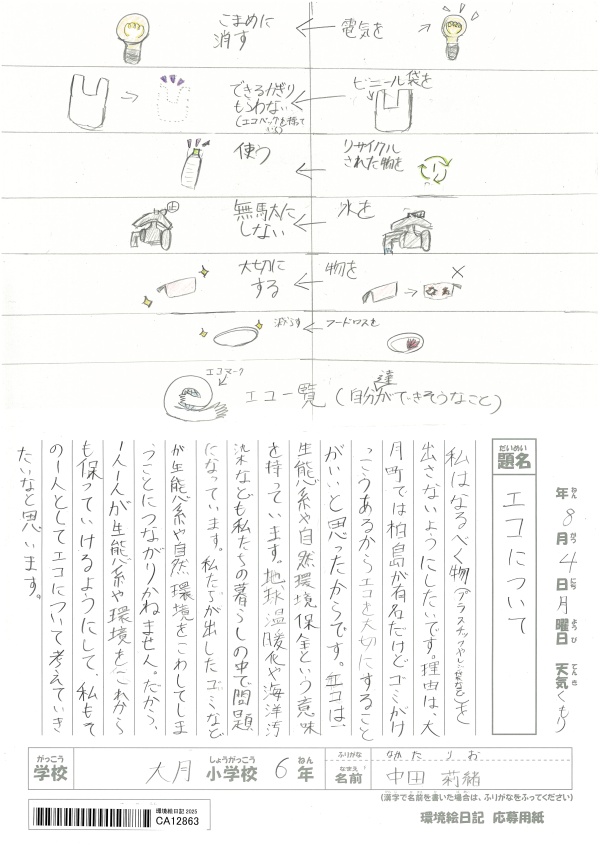 電気を
こまめに
消す
ビニール袋を
できるかぎり
もらわない
(エコバックを持って
いく)
リサイクル
された物を
使う
水を
無駄に
しない
物を
大切に
する
フードロスを
減らす
エコマーク
エコ一覧(自分達ができそうなこと)
年8月4日月曜日 天気くもり
ねん がつ か にち ようび てんき
だいめい
題名
エコについて
私はなるべく物(プラスチックやレジ袋など)を
出さないようにしたいです。理由は、大
月町では柏島が有名だけどゴミがけ
っこうあるからエコを大切にすること
がいいと思ったからです。エコは、
生態系や自然環境保全という意味
を持っています。地球温暖化や海洋汚
染なども私たちの暮らしの中で問題
になっています。私たちが出したゴミなど
が生態系や自然環境をこわしてしま
うことにつながりかねません。だから、
一人一人が生態系や環境をこれから
も保っていけるようにして、私もそ
の1人としてエコについて考えていき
たいなと思います。
がっこう しょうがっこう ねん
学校 大月 小学校 6年
ふりがな なかた りお
なまえ
名前 中田 莉緒
(漢字で名前を書いた場合は、ふりがなをふってください)
環境絵日記 2025
CA12863
環境絵日記 応募用紙